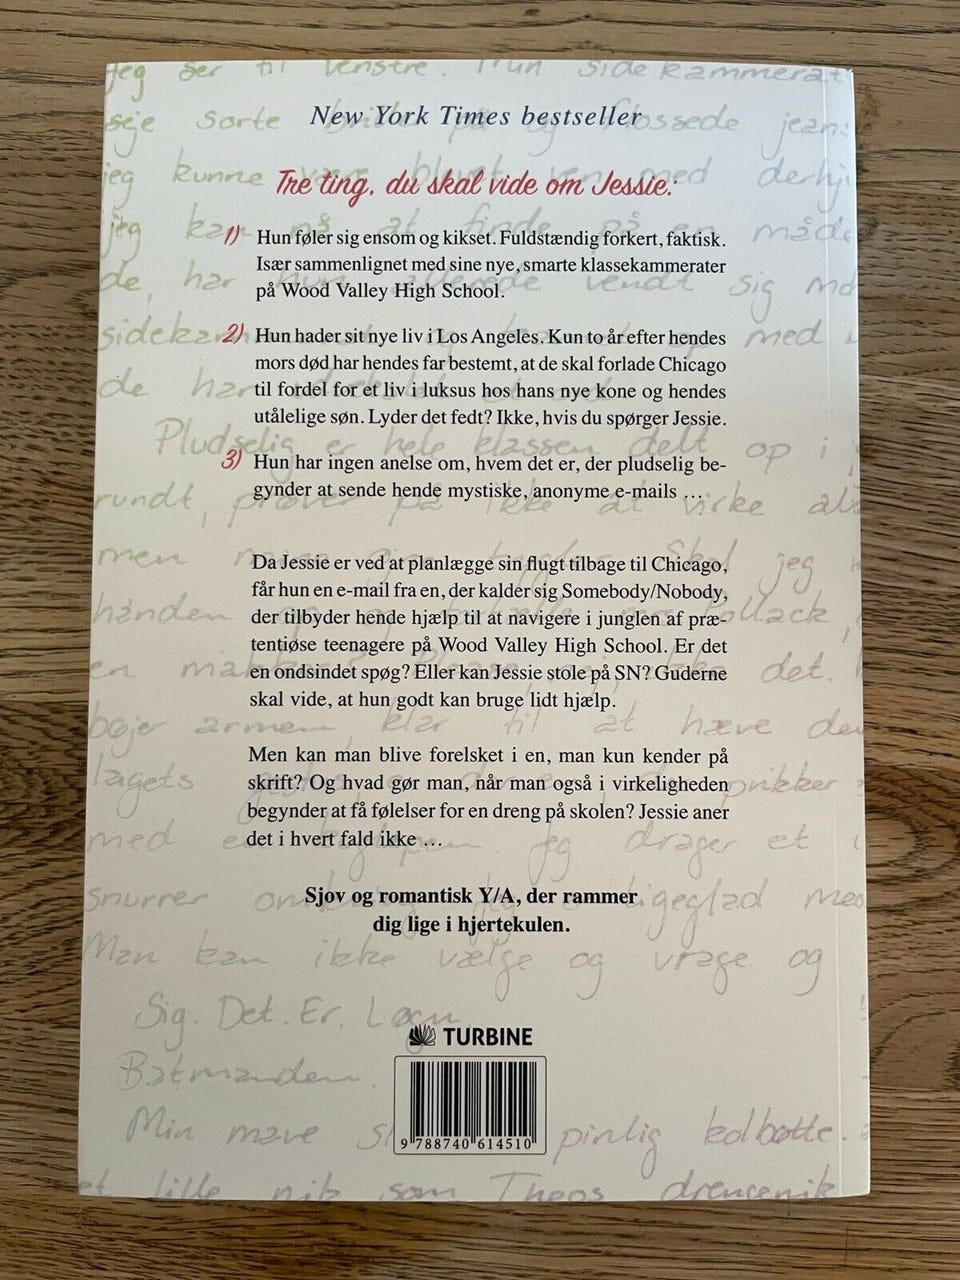 jeg ser til venstre. Min sidekammerat
New York Times bestseller
seje sorte på og flossede jeans
Tre ting, du skal vide om Jessie:
jeg kunne være med
jeg kan på at finde på en måde
1) Hun føler sig ensom og kikset. Fuldstændig forkert, faktisk.
Især sammenlignet med sine nye, smarte klassekammerater
på Wood Valley High School.
de, har allerede vendt sig mod
2) Hun hader sit nye liv i Los Angeles. Kun to år efter hendes
mors død har hendes far bestemt, at de skal forlade Chicago
til fordel for et liv i luksus hos hans nye kone og hendes
utålelige søn. Lyder det fedt? Ikke, hvis du spørger Jessie.
med
de har
Pludselig er hele klassen delt op i
3) Hun har ingen anelse om, hvem det er, der pludselig be-
gynder at sende hende mystiske, anonyme e-mails …
rundt, prøver på ikke at virke
men Skal jeg
Da Jessie er ved at planlægge sin flugt tilbage til Chicago,
får hun en e-mail fra en, der kalder sig Somebody/Nobody,
der tilbyder hende hjælp til at navigere i junglen af præ-
tentiøse teenagere på Wood Valley High School. Er det
en ondsindet spøg? Eller kan Jessie stole på SN? Guderne
skal vide, at hun godt kan bruge lidt hjælp.
hånden op
en det.
bøjer armen, klar til at hæve den
lagets prikker
Men kan man blive forelsket i en, man kun kender på
skrift? Og hvad gør man, når man også i virkeligheden
begynder at få følelser for en dreng på skolen? Jessie aner
det i hvert fald ikke …
med en Jeg drager et
snurrer ligeglad med
Sjov og romantisk Y/A, der rammer
dig lige i hjertekulen.
Man kan ikke vælge og vrage og
Sig. Det. Er. Løgn
TURBINE
Batmanden.
Min mave pinlig kolbøtte.
9 788740 614510
et lille nik som Theos drengenik